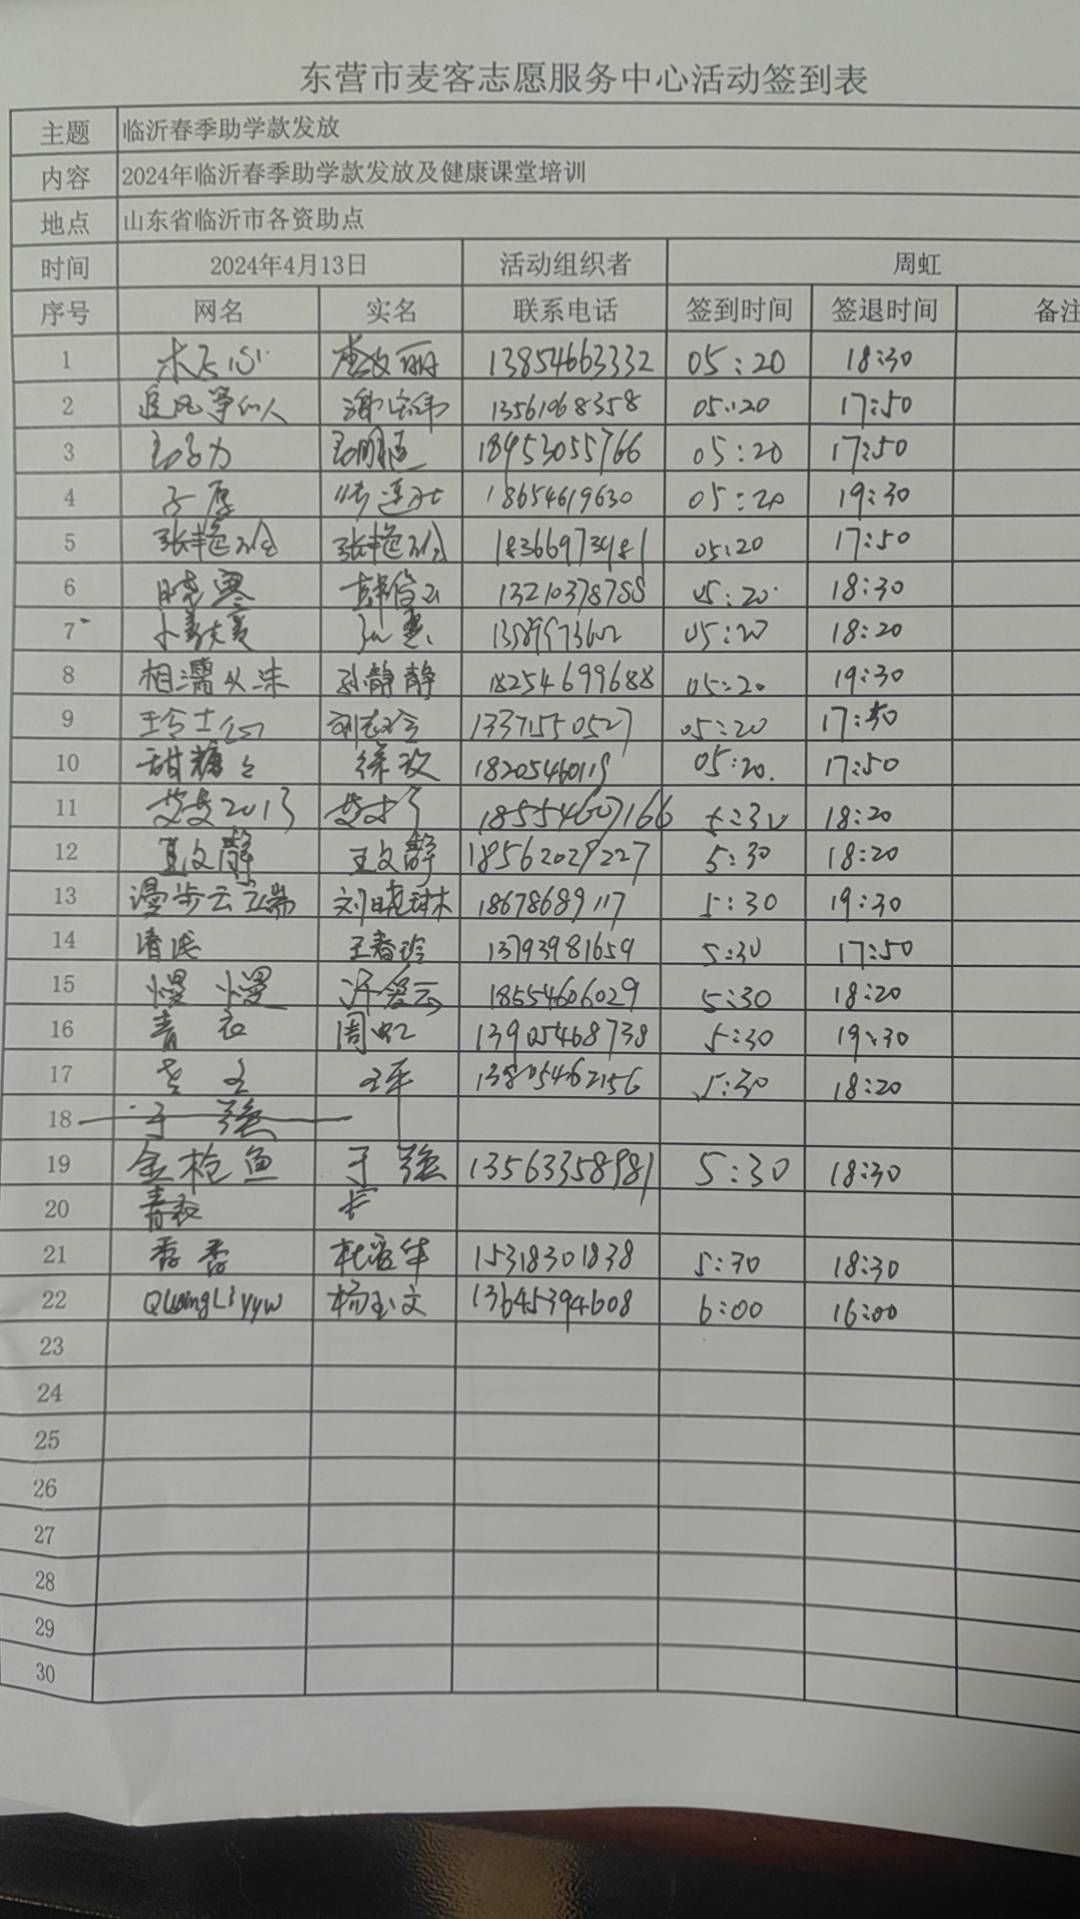 东营市麦客志愿服务中心活动签到表
主题 临沂春季助学款发放
内容 2024年临沂春季助学款发放及健康课堂培训
地点 山东省临沂市各资助点
时间 2024年4月13日 活动组织者 周虹
序号 网名 实名 联系电话 签到时间 签退时间 备注
1 13854663332 05:20 18:30
2 追风筝的人 13561068358 05:20 17:50
3 18453055766 05:20 17:50
4 子厚 18654619630 05:20 19:30
5 18366973981 05:20 17:50
6 晓寒 13210378788 05:20 18:30
7 05:20 18:20
8 相濡以沫 孙静静 18254699688 05:20 19:30
9 13371550527 05:20 17:50
10 甜糖 徐玫 05:20 17:50
11 艾艾2013 18554607166 5:30 18:20
12 夏文静 王文静 18562029227 5:30 18:20
13 漫步云端 刘晓琳 18678689117 5:30 19:30
14 清浅 王春玲 13793981659 5:30 17:50
15 慢慢 许爱云 18554606029 5:30 18:20
16 青衣 周虹 13905468738 5:30 19:30
17 13805462156 5:30 18:20
18 于强
19 金枪鱼 于强 13563358981 5:30 18:30
20 青衣
21 香香 15318301838 5:30 18:30
22 杨玉文 13645394608 6:00 16:00
23
24
25
26
27
28
29
30